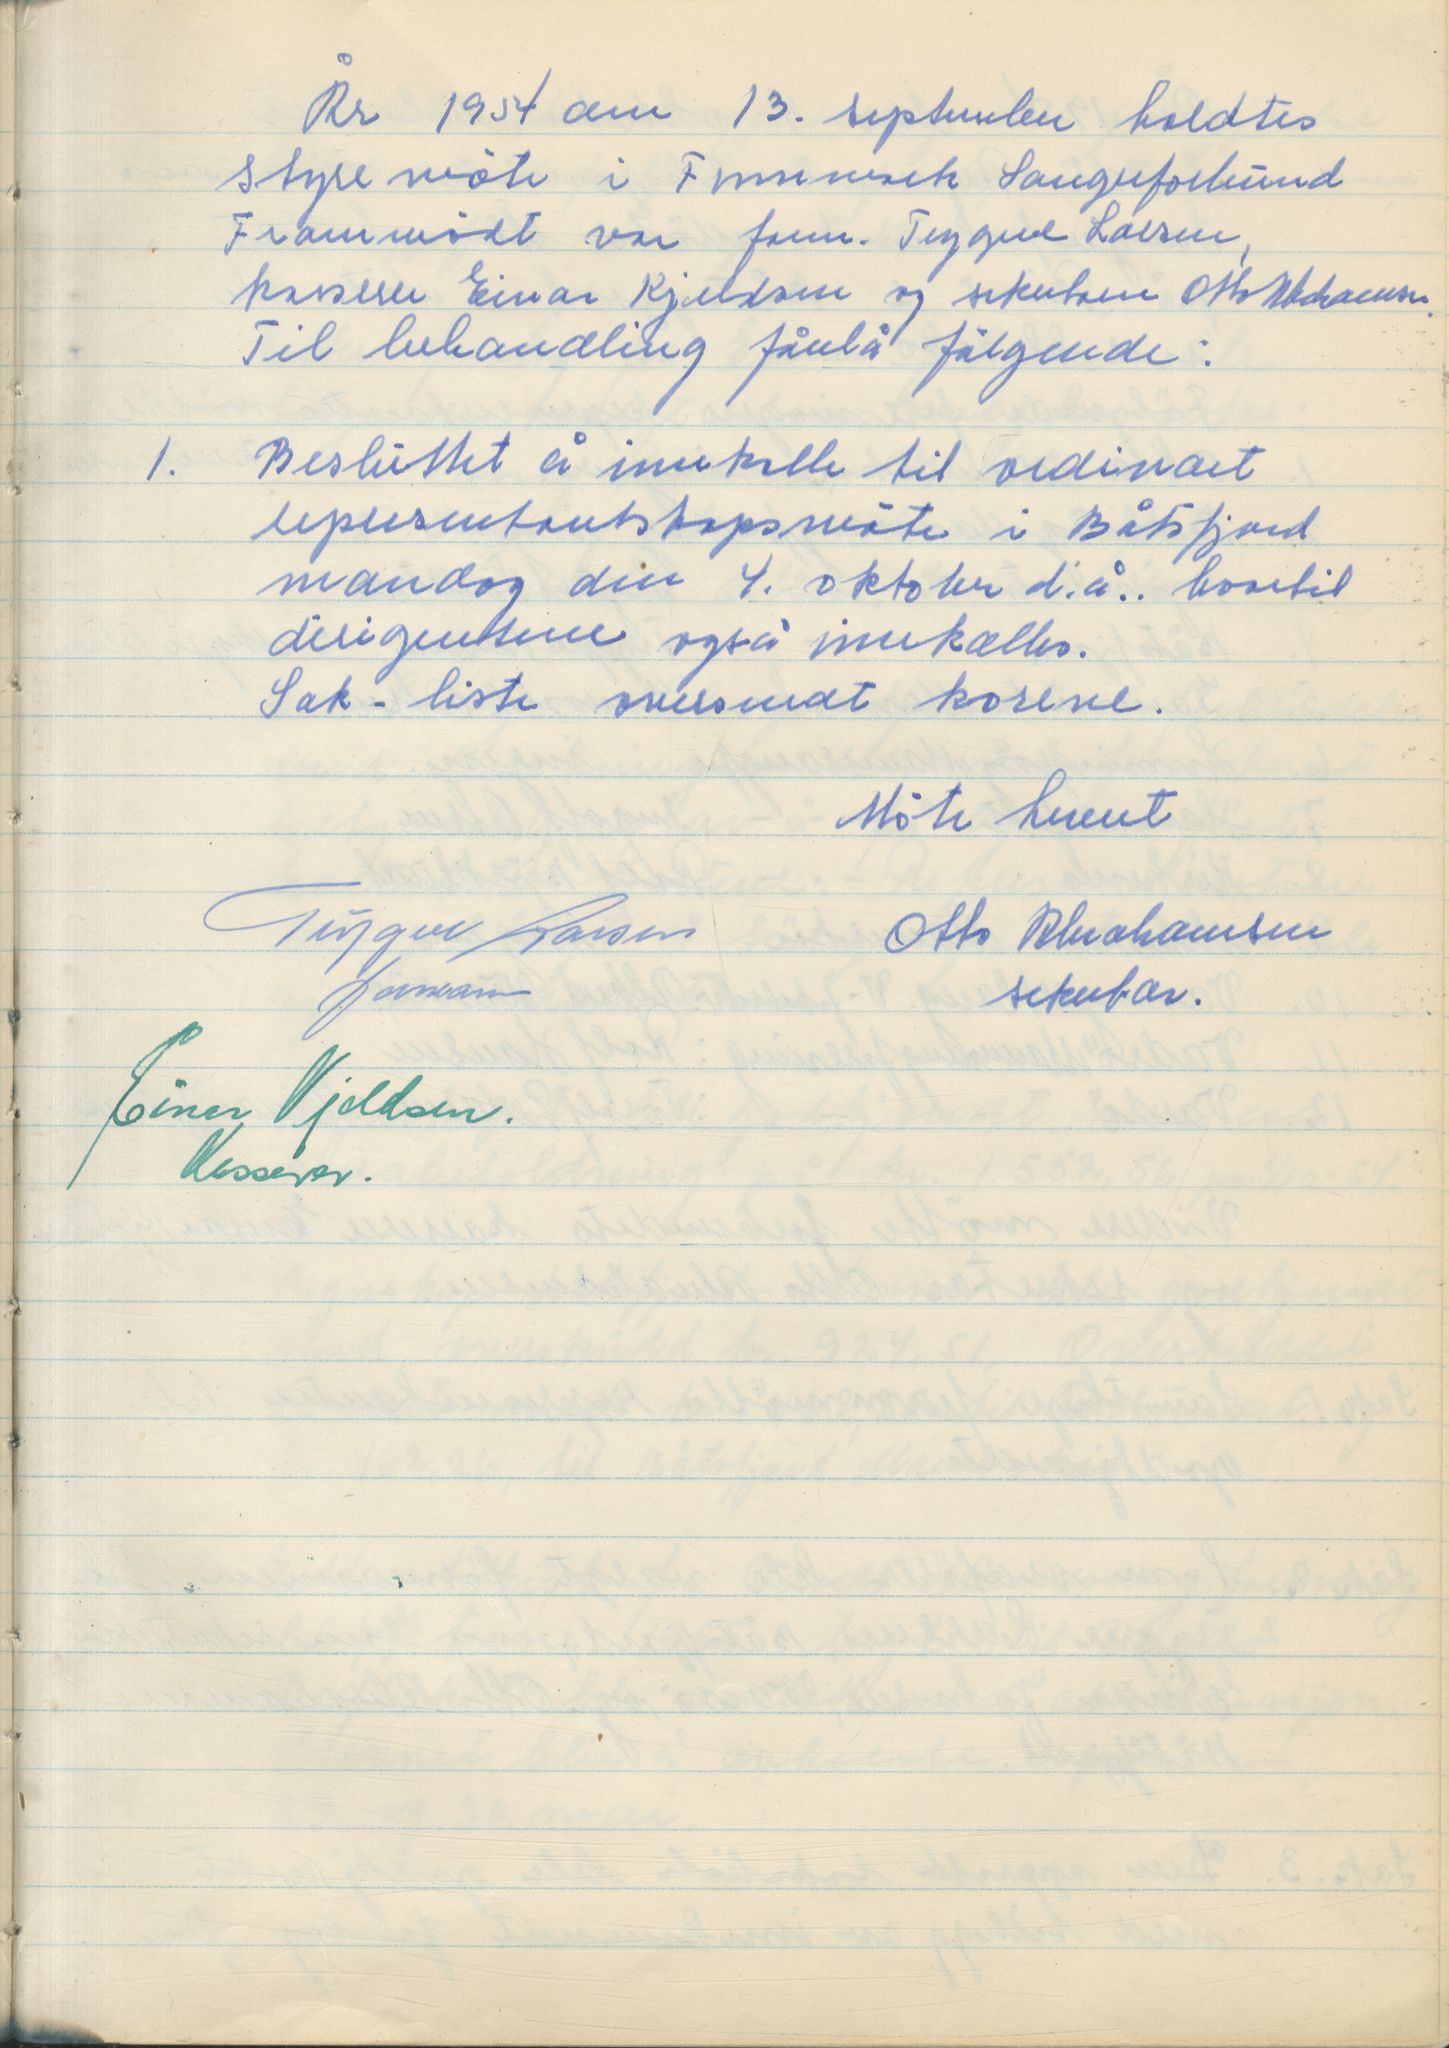 År 1954 den 13. september holdtes
styremöte i Finnmark Sangerforbund
Frammödt var form. Trygve Larsen,
kasserer Einar Kjeldsen og sekretær Otto Abrahamsen.
Til behandling förelå fölgende:
1. Besluttet å innkalle til ordinært
representantskapsmöte i Båtsfjord
mandag den 4. oktober d.å.. hvortil
dirigentene også innkalles.
Sak-liste oversendt korene.
Möte hevet
Trygve Larsen
formann
Otto Abrahamsen
sekretær.
Einar Kjeldsen.
Kasserer.